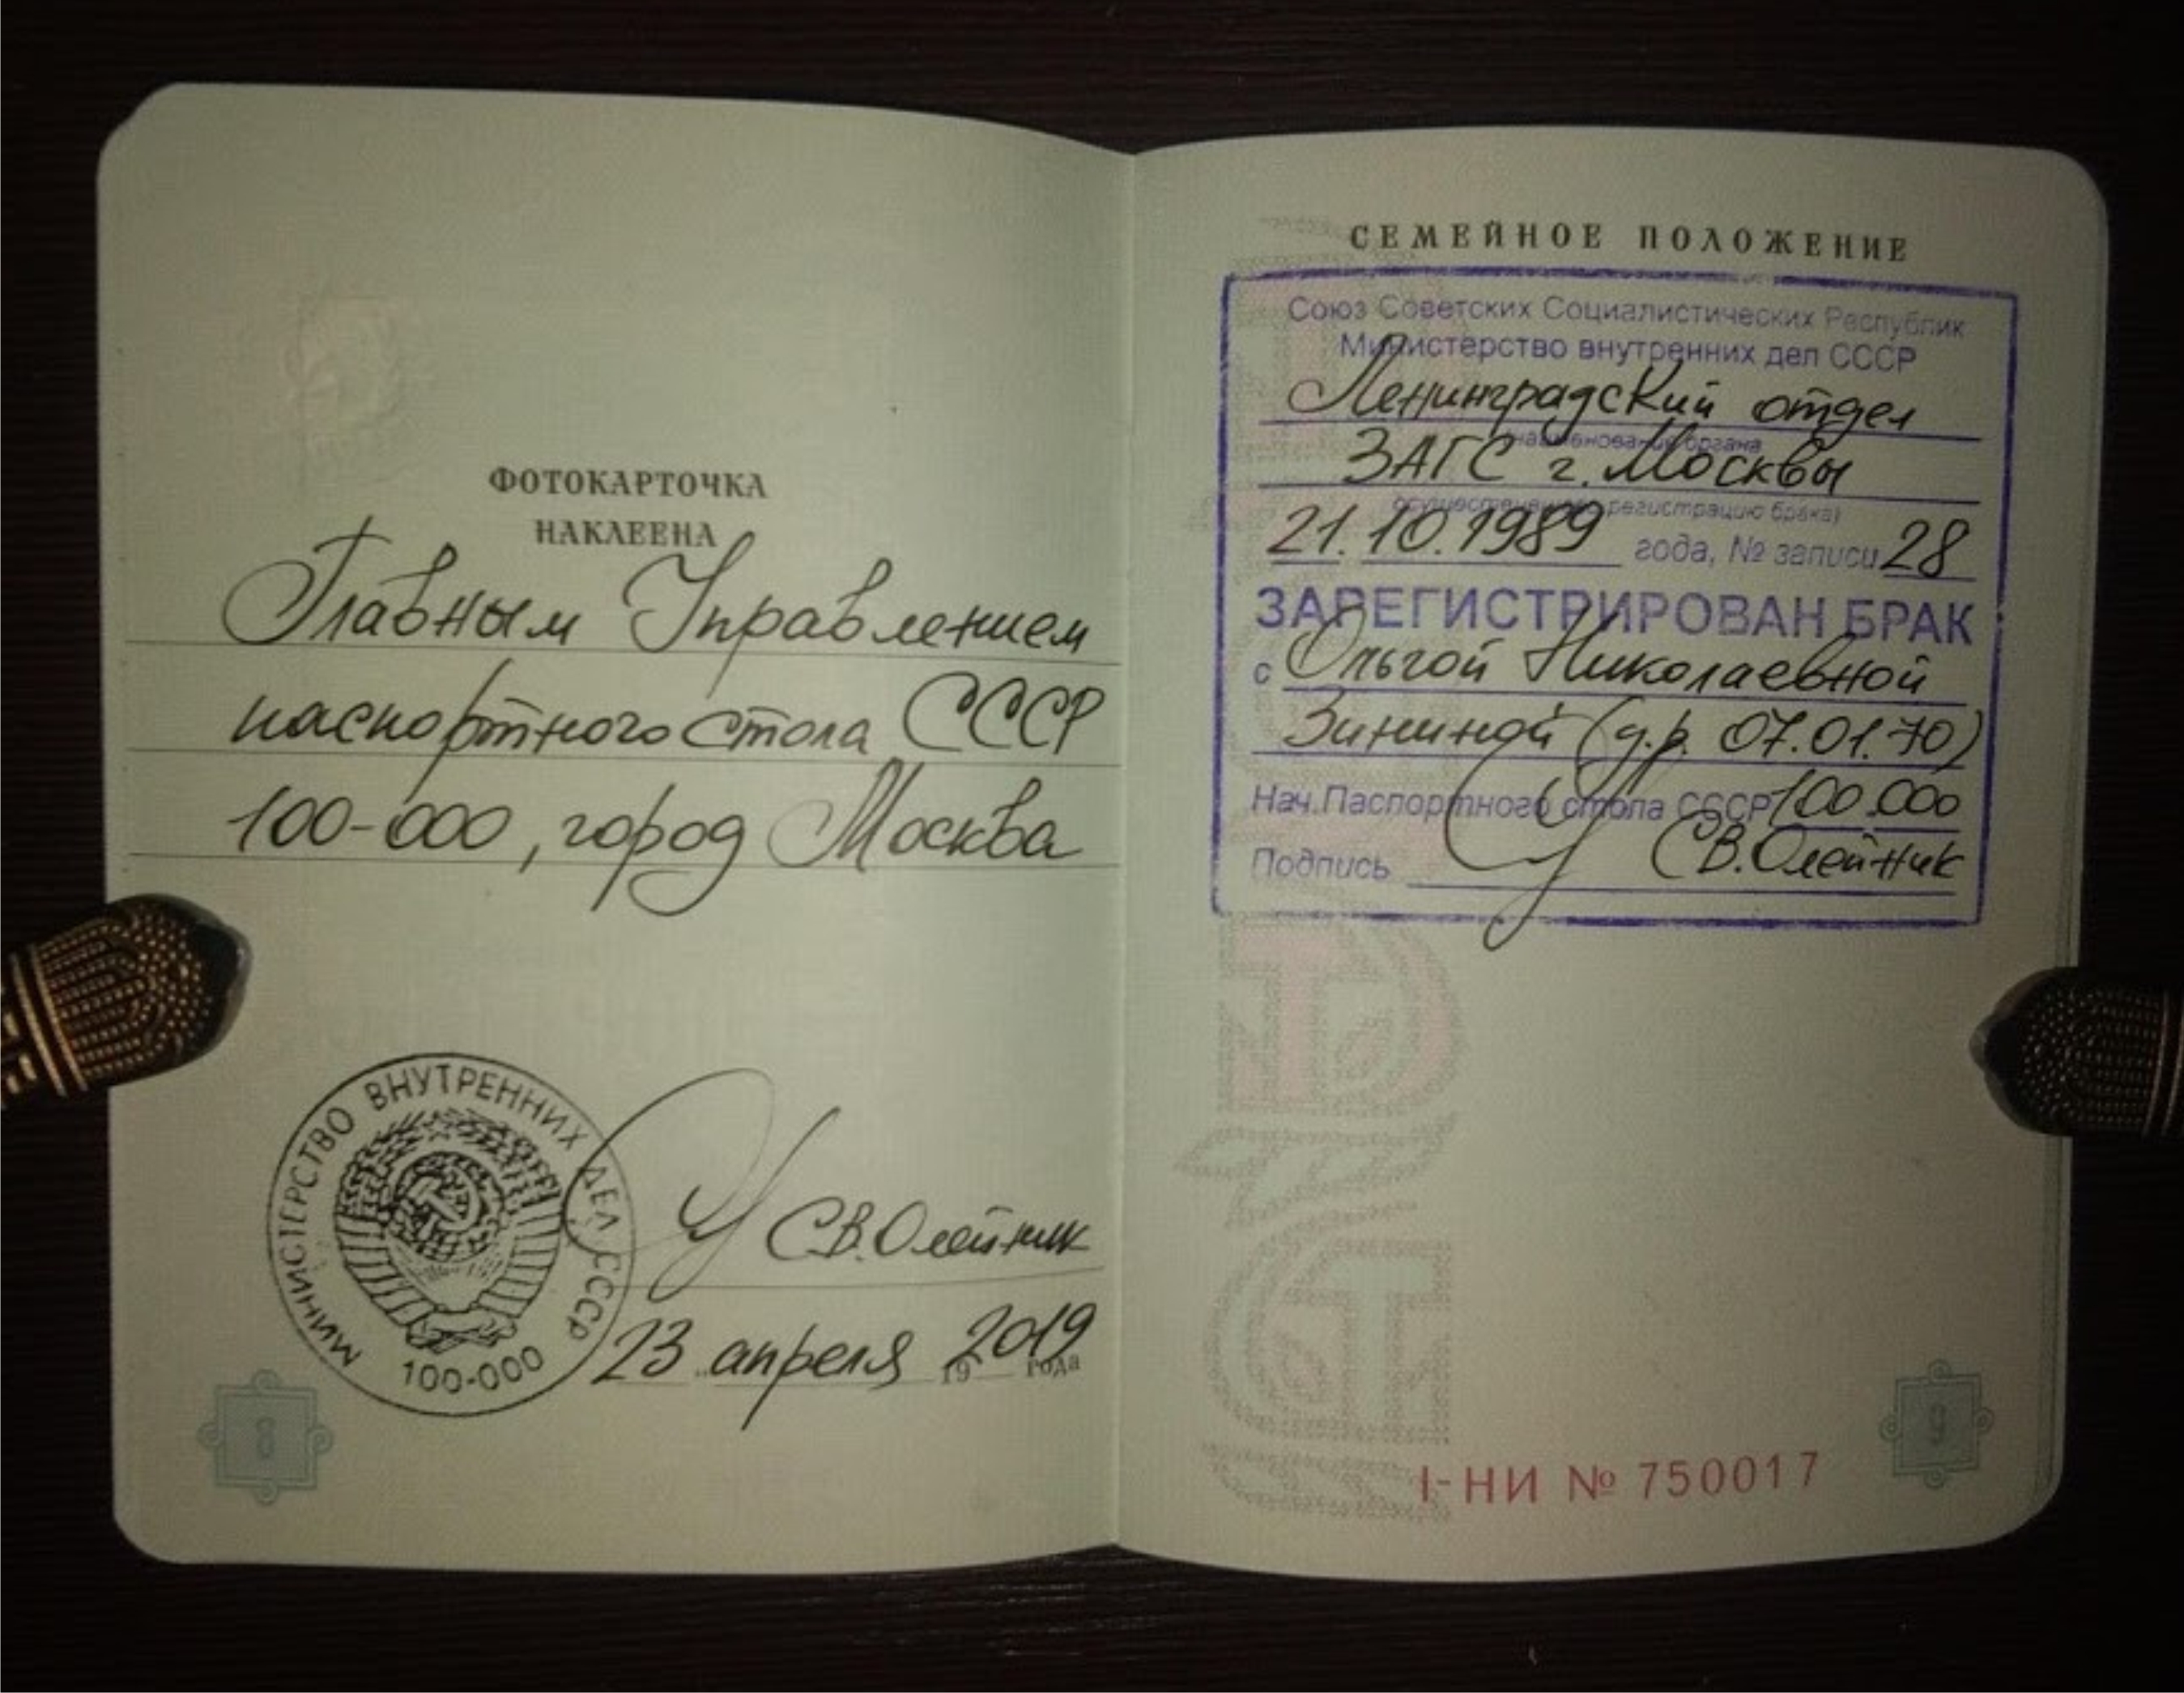 ФОТОКАРТОЧКА
НАКЛЕЕНА
Главным Управлением
паспортного стола СССР
100-000, город Москва
МИНИСТЕРСТВО ВНУТРЕННИХ ДЕЛ СССР
100-000
С.В.Олейник
23 апреля 2019
19 года
8
СЕМЕЙНОЕ ПОЛОЖЕНИЕ
Союз Советских Социалистических Республик
Министерство внутренних дел СССР
Ленинградский отдел
наименование органа
ЗАГС г. Москвы
регистрацию брака)
21.10.1989 года, № записи 28
ЗАРЕГИСТРИРОВАН БРАК
с Ольгой Николаевной
Зининой (д.р. 07.01.70)
Нач.Паспортного стола СССР 100.000
Подпись С.В.Олейник
I-НИ № 750017
9